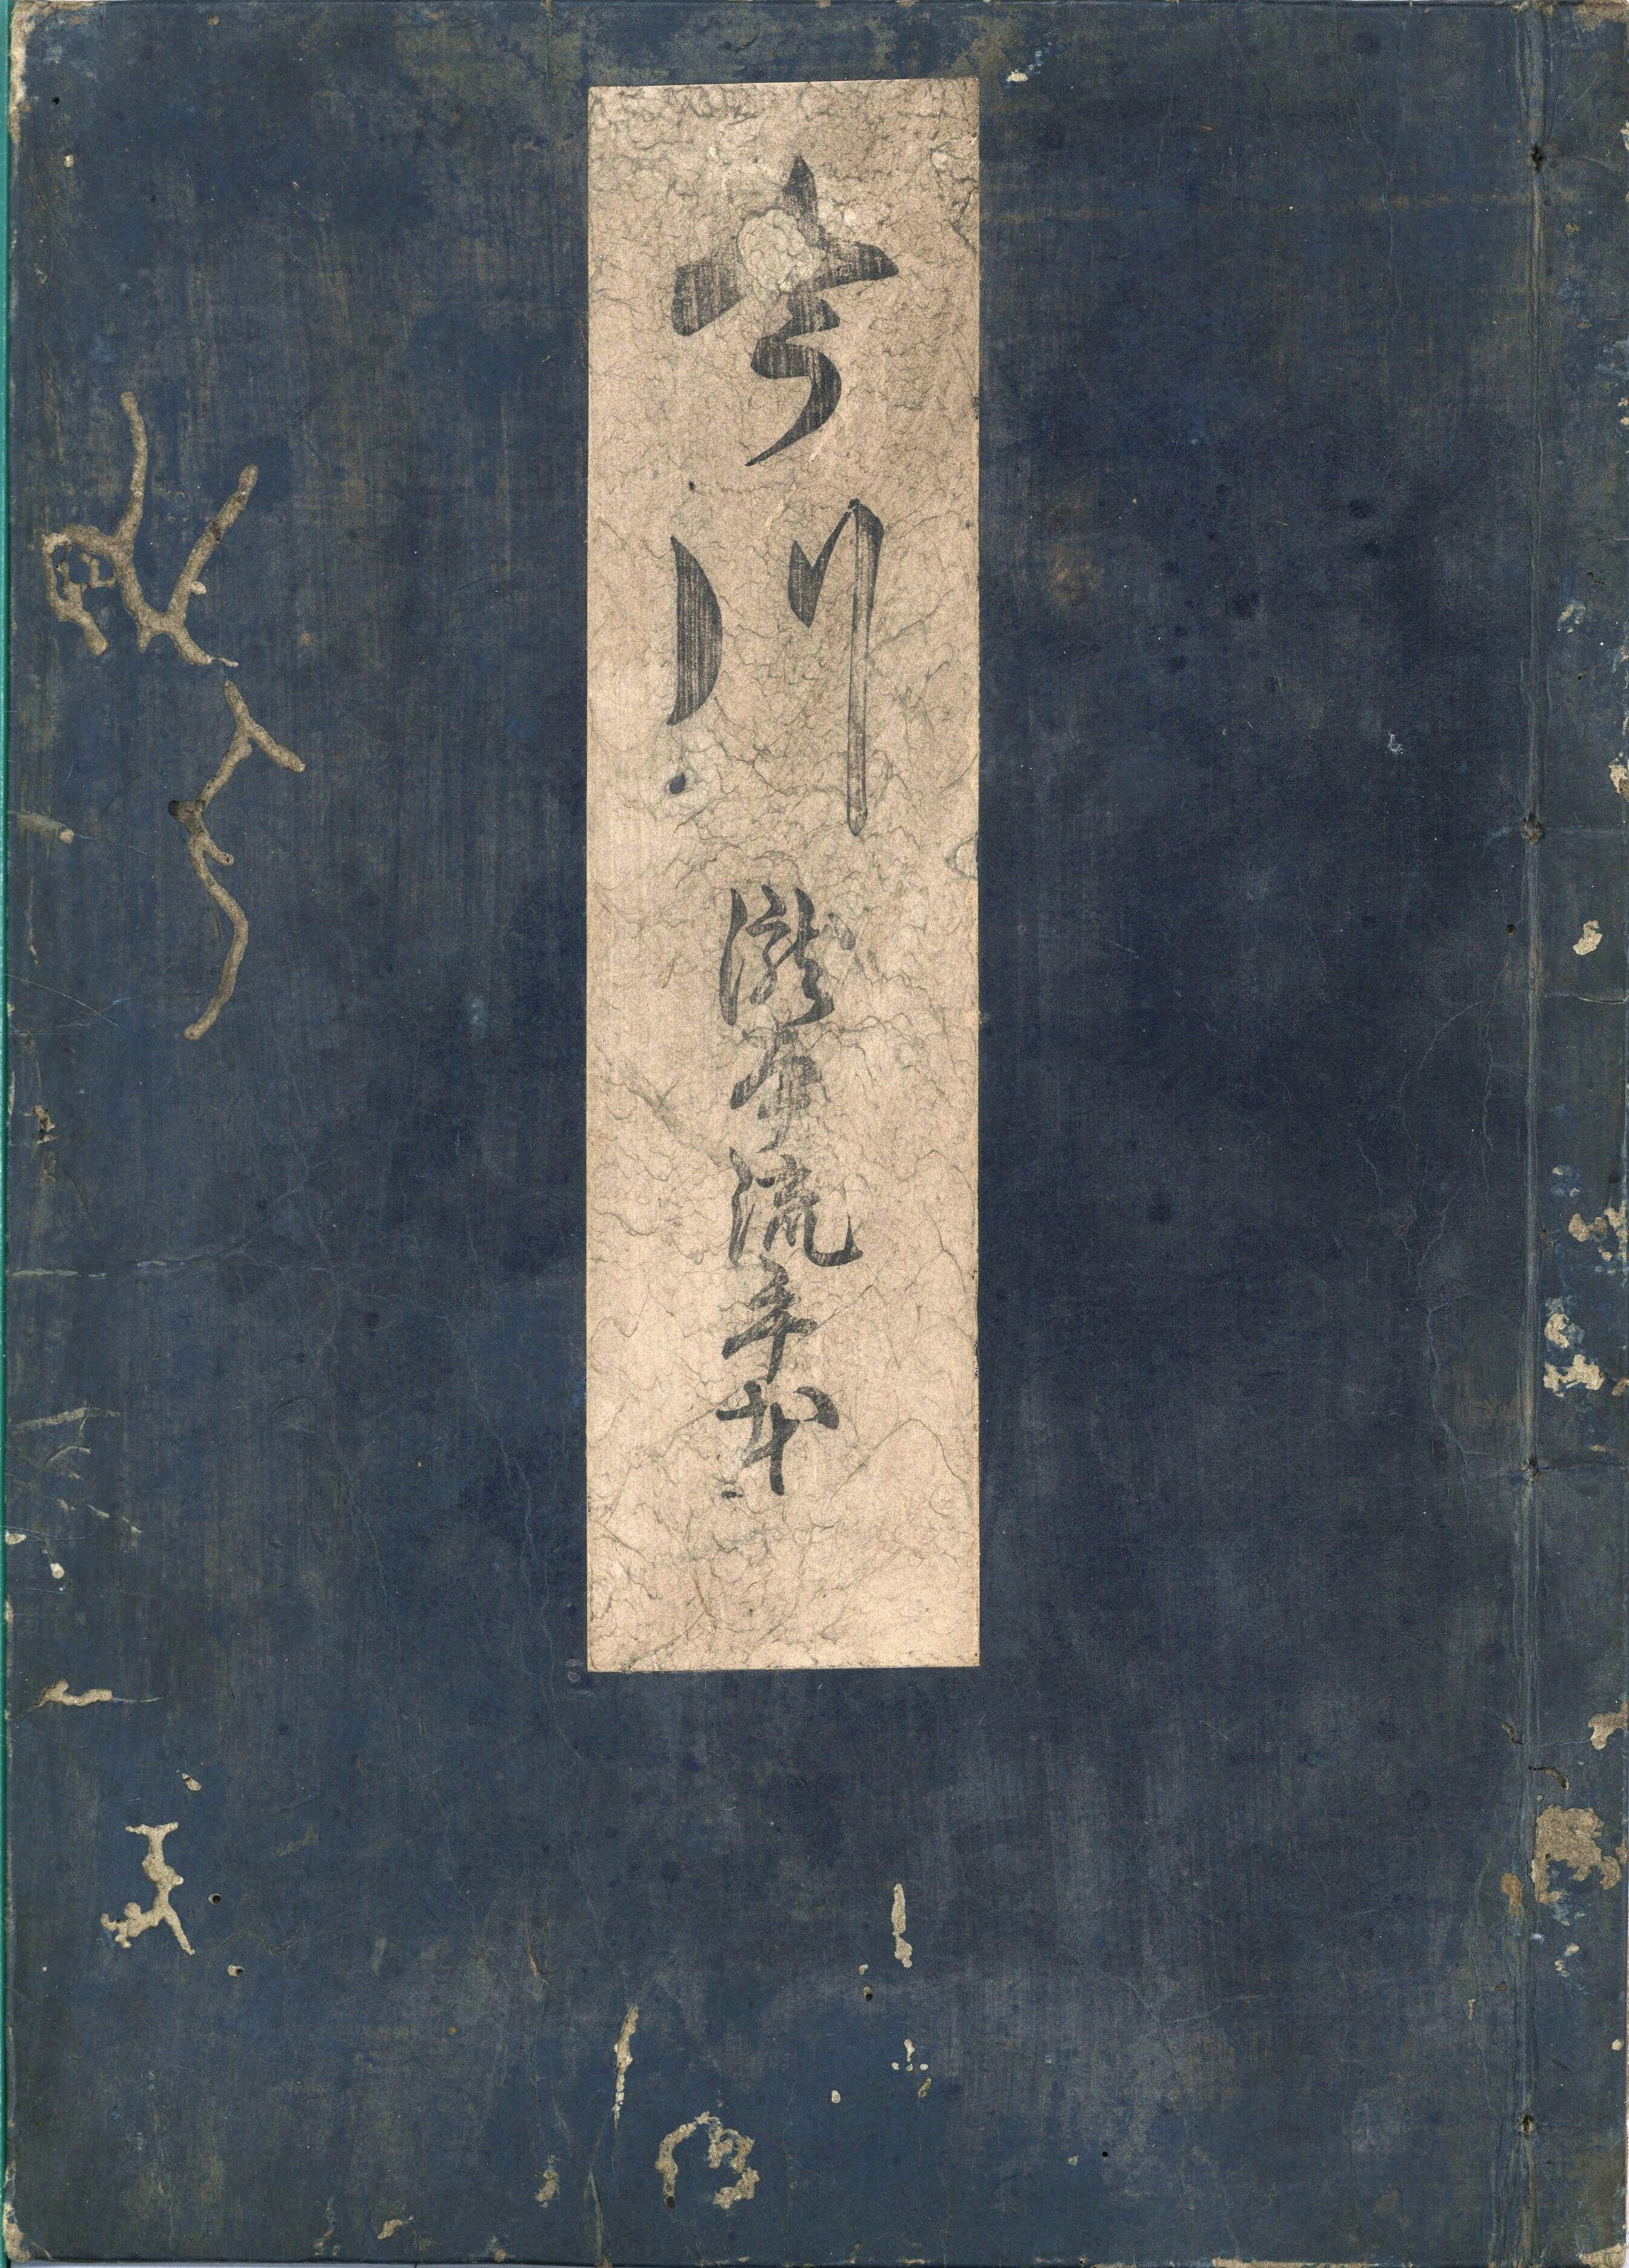 今川
瀧本流手本